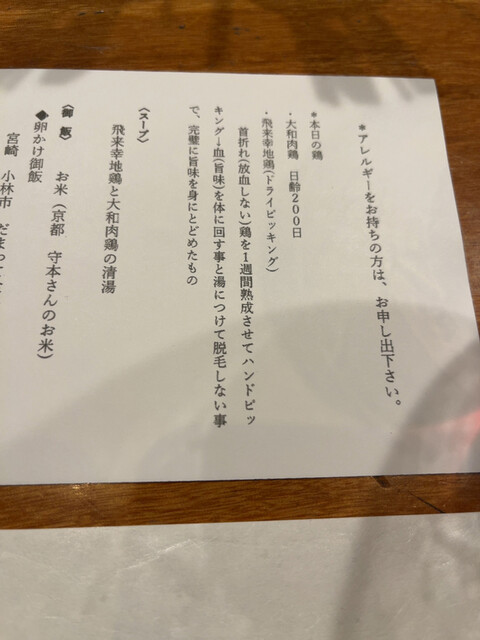 *アレルギーをお持ちの方は、お申し出下さい。
*本日の鶏
・大和肉鶏 日齢200日
・飛来幸地鶏(ドライピッキング)
首折れ(放血しない)鶏を1週間熟成させてハンドピッ
キング→血(旨味)を体に回す事と湯につけて脱毛しない事
で、完璧に旨味を身にとどめたもの
〈スープ〉
飛来幸地鶏と大和肉鶏の清湯
〈御飯〉 お米(京都 守本さんのお米)
◆卵かけ御飯
宮崎 小林市 だまって